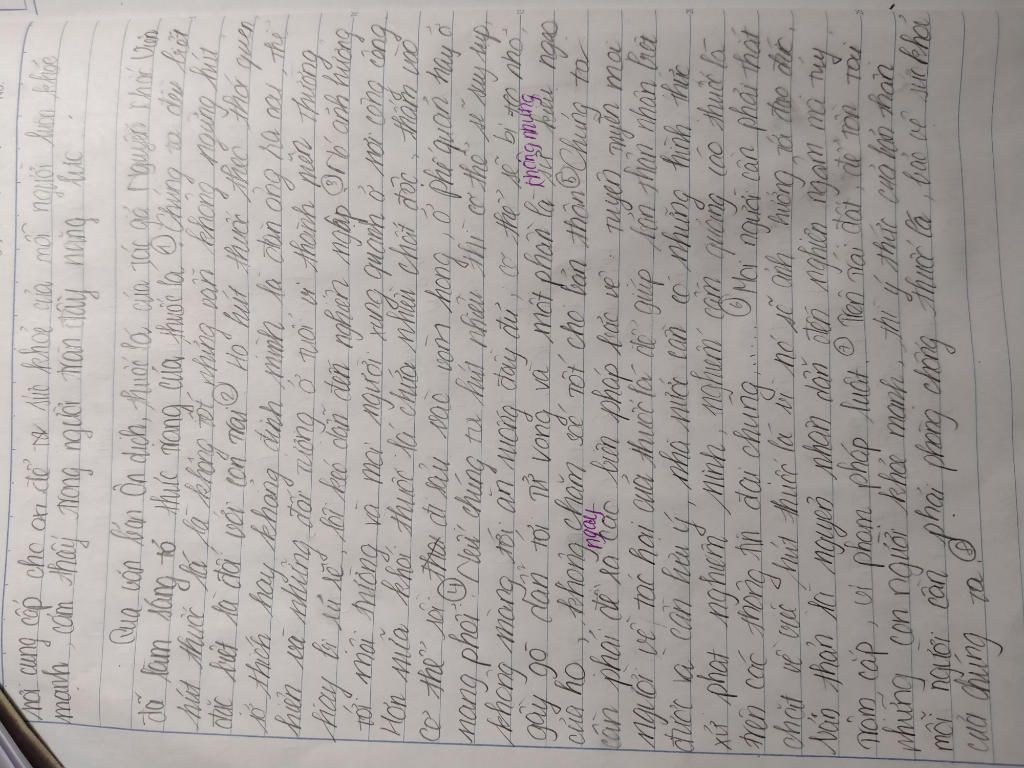 nó cung cấp cho ta để sức khỏe của mỗi người luôn khỏe
mạnh, cảm thấy trong người tràn đầy năng lực.
Qua văn bản Ôn dịch, thuốc lá của tác giả Nguyễn Khắc Viện
đã làm sáng tỏ thực trạng của thuốc lá. Chúng ta đều biết
hút thuốc lá là không tốt nhưng vẫn không ngừng hút
đặc biệt là đối với con trai. Họ hút thuốc theo thói quen
sở thích hay khẳng định mình là đàn ông ra oai thể
hiện và những đối tượng ở tuổi vị thành niên thường
hay bị dụ dỗ, lôi kéo dẫn đến nghiện ngập. Nó ảnh hưởng
tới môi trường và mọi người xung quanh ở nơi công cộng
Hơn nữa khói thuốc lá chứa nhiều chất độc, thấm vào
cơ thể rồi đi sâu vào vòm họng, ở phế quản hay ở
nang phổi. Nếu chúng ta hút nhiều thì cơ thể sẽ suy sụp
không mong tới ăn uống đầy đủ, cơ thể sẽ bị thu nhỏ,
gầy gò dẫn tới tử vong và một phần là
của họ, không chăm sóc tốt cho bản thân. Chúng ta
cần phải đề ra ngay biện pháp bảo vệ, tuyên truyền mọi
người về tác hại của thuốc lá để giúp bản thân nhận biết
được và cần lưu ý, nhà nước cần có những hình thức
xử phạt nghiêm minh, nghiêm cấm quảng cáo thuốc lá
trên các thông tin đại chúng..... Mọi người cần phải thắt
chặt về việc hút thuốc lá vì nó sẽ ảnh hưởng tới đạo đức,
bản thân là nguyên nhân dẫn đến nghiện ngập ma túy,
trộm cắp, vi phạm pháp luật. Trên trái đất, để tồn tại
những con người khỏe mạnh, thì ý thức của bản thân
mỗi người cần phải phòng chống thuốc lá, bảo vệ sức khỏe
của chúng ta.